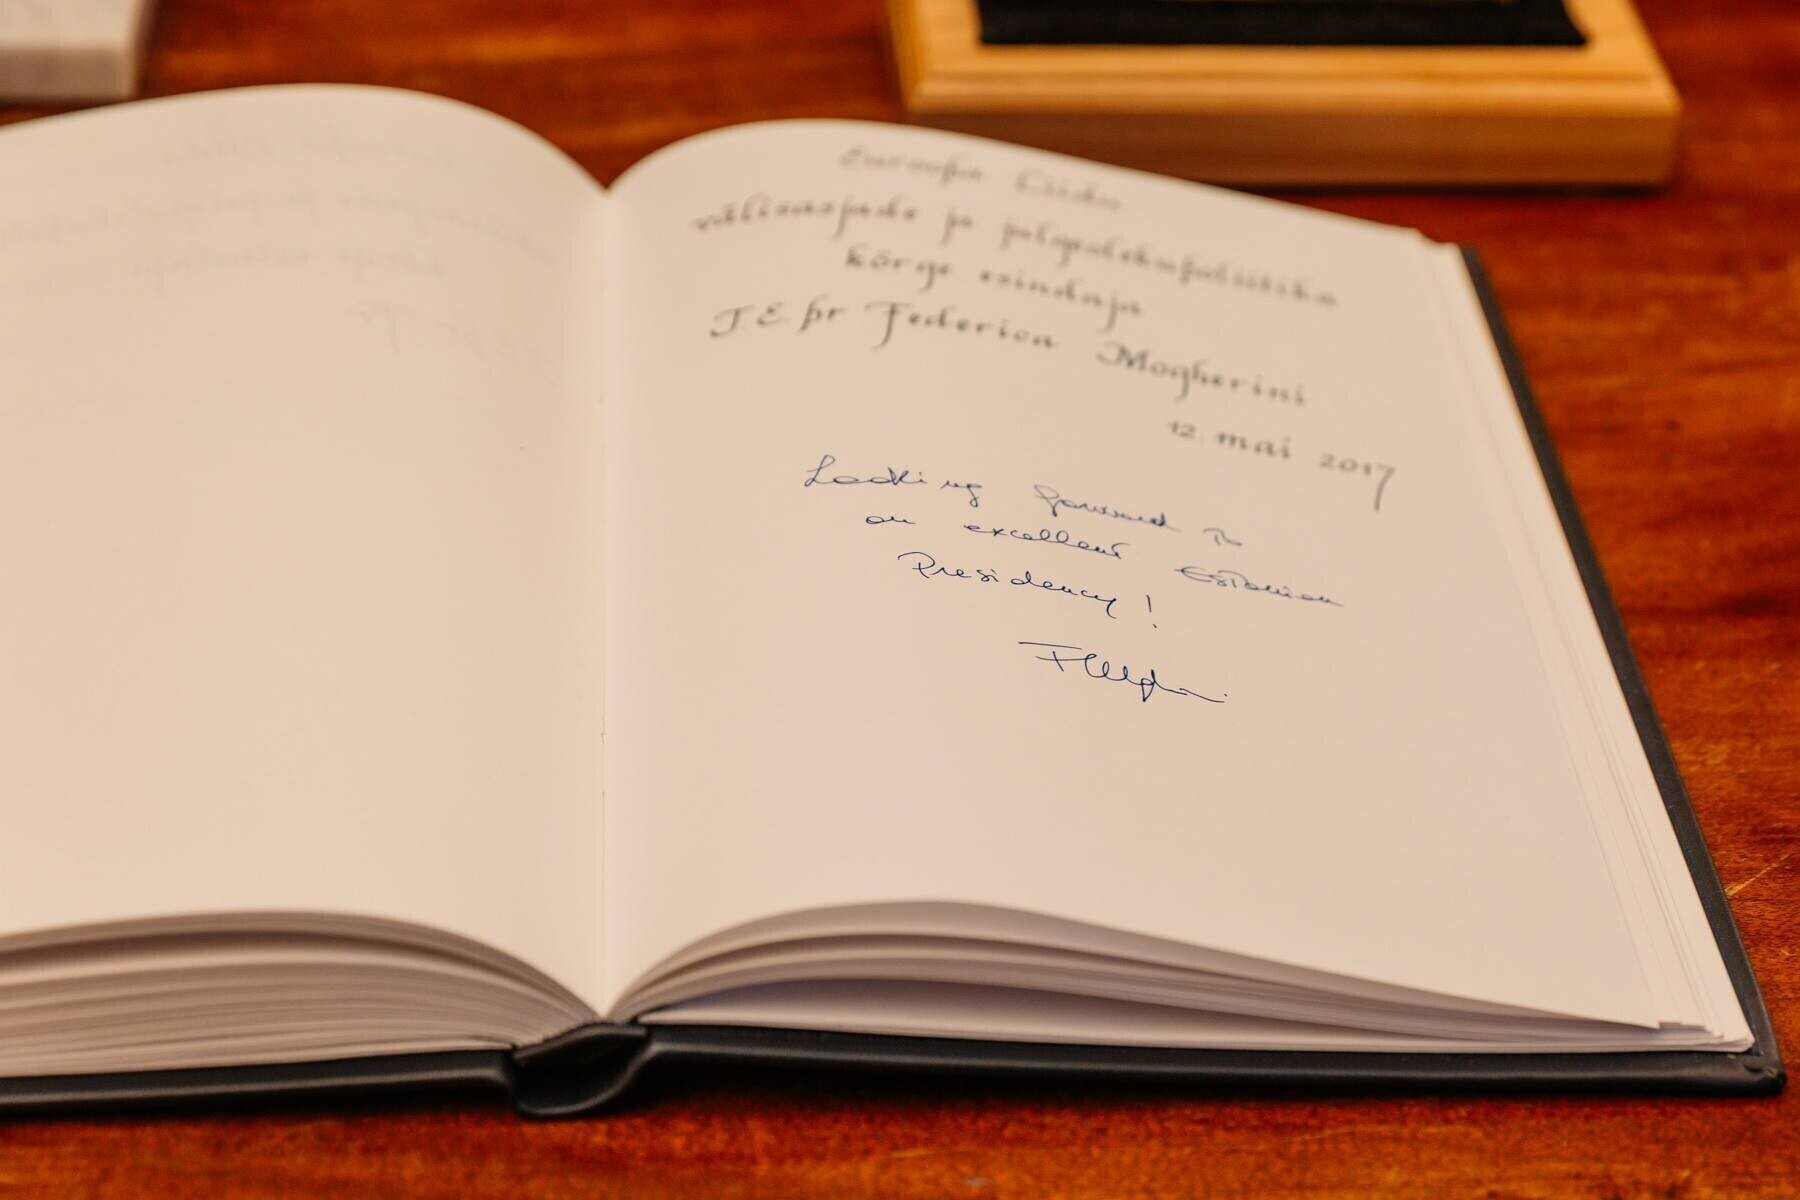 Euroopa Liidu
välisasjade ja julgeolekupoliitika
kõrge esindaja
T.E. pr Federica Mogherini
12. mai 2017
Looking forward to
an excellent Estonian
Presidency!